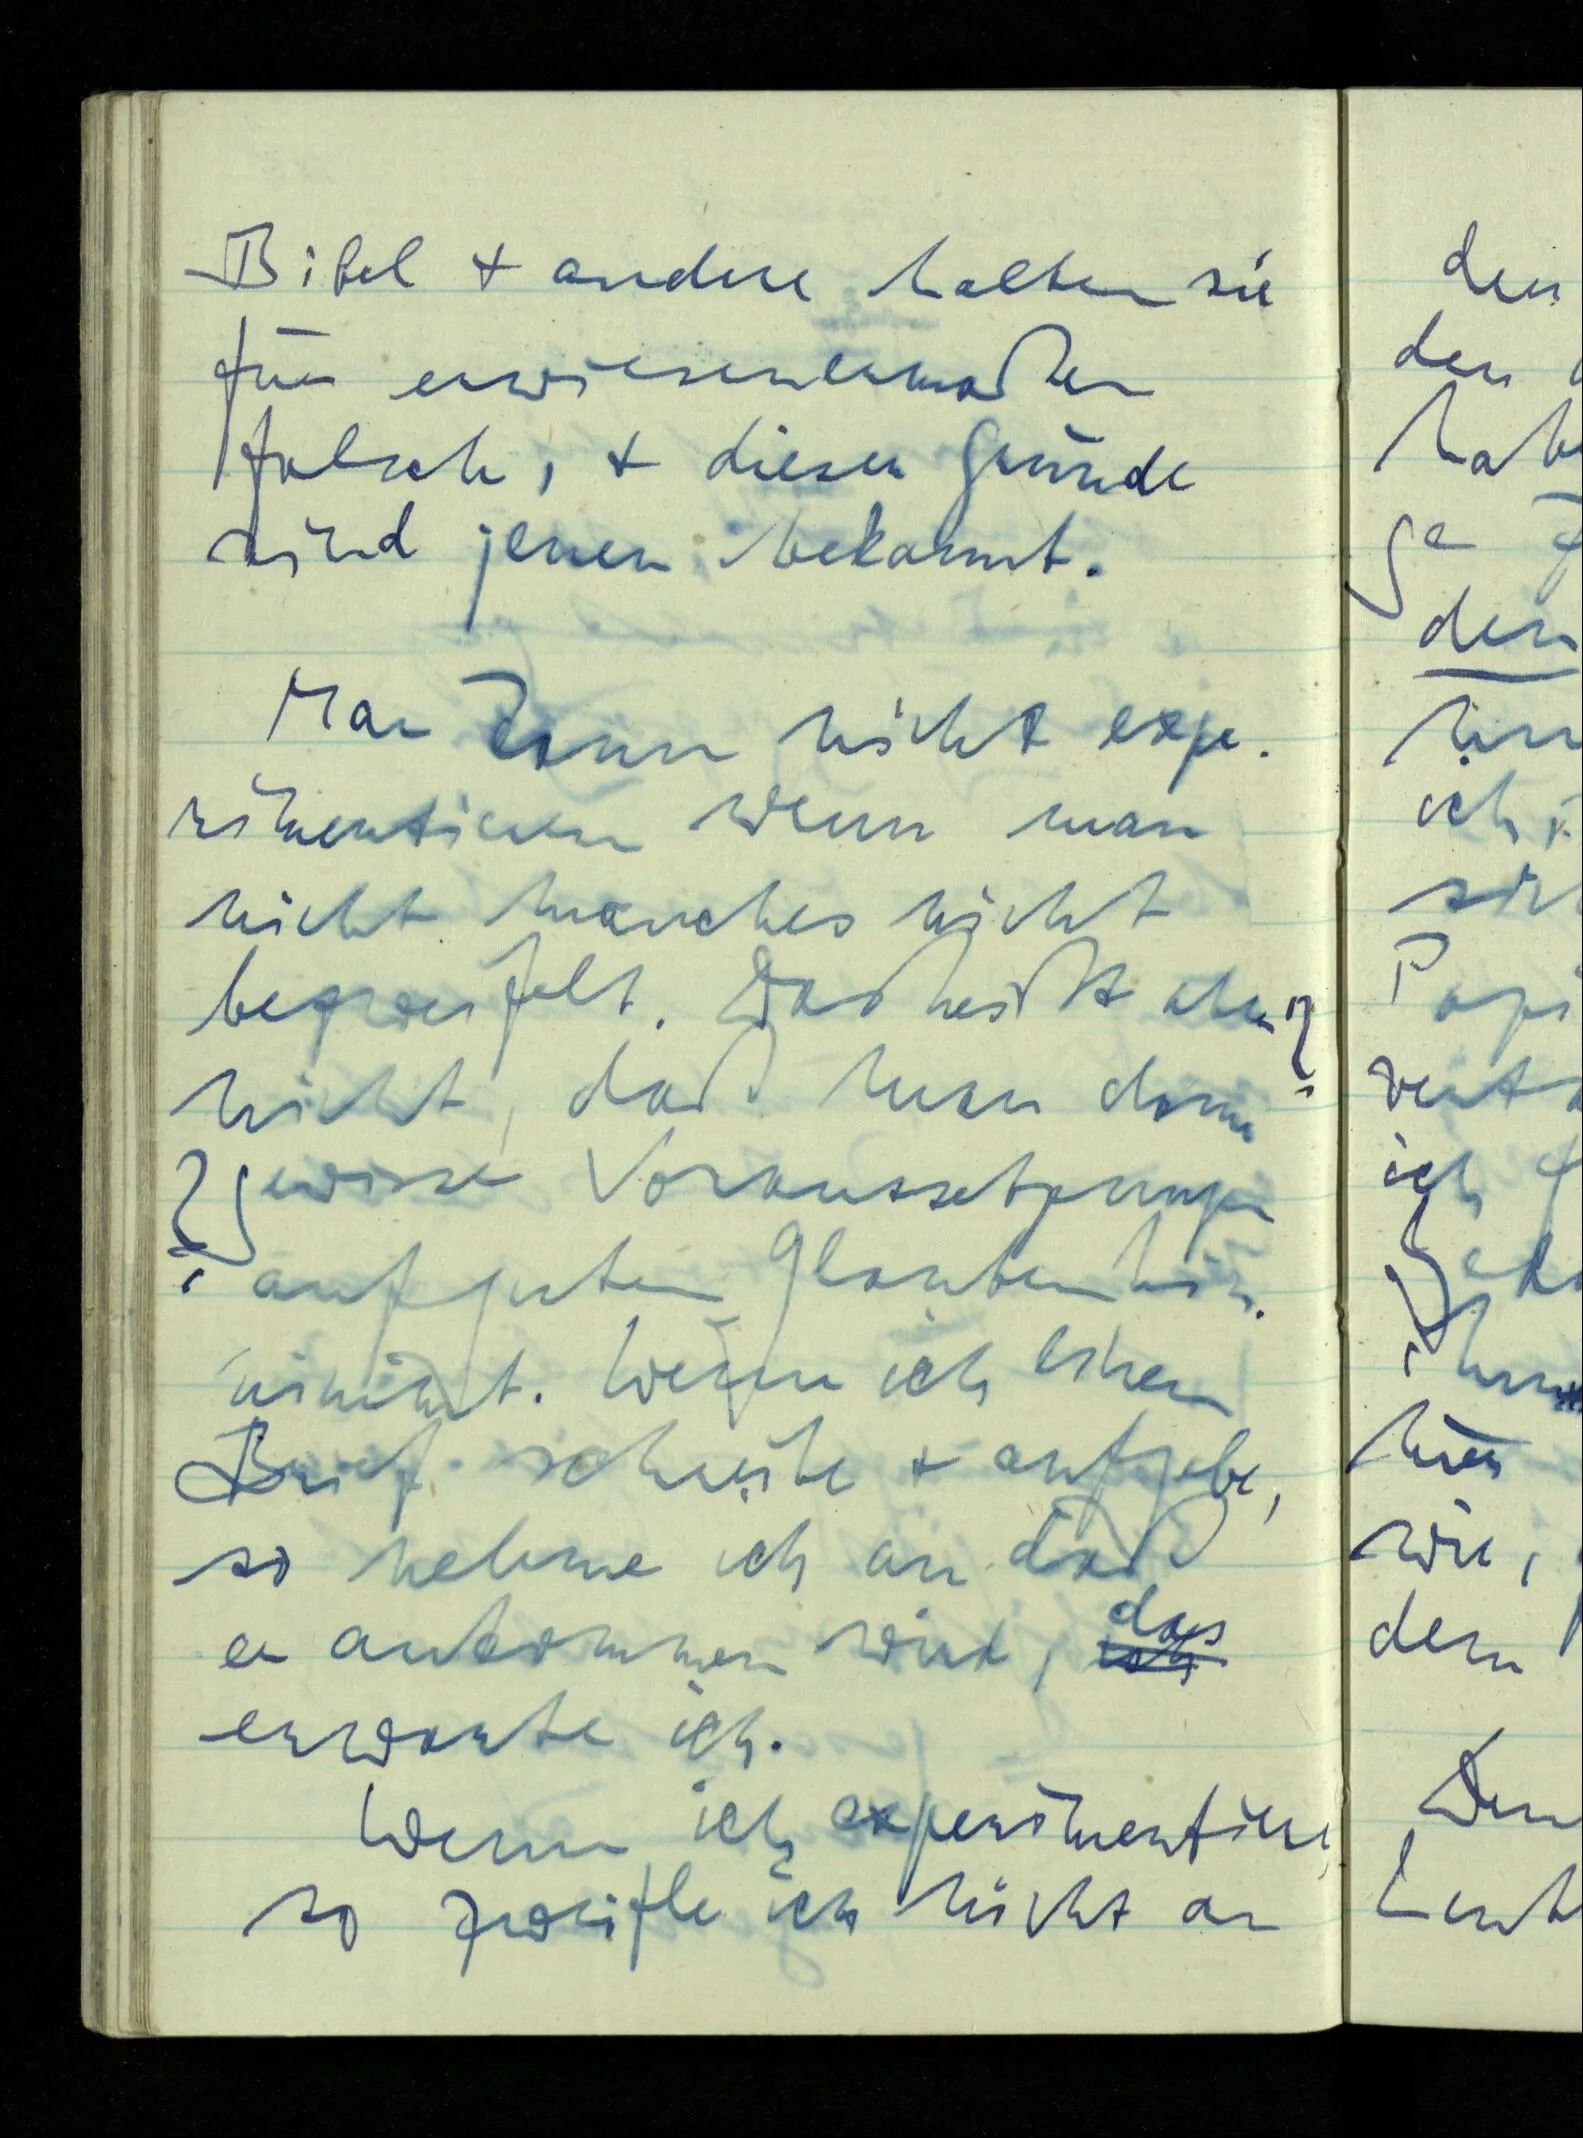 Bibel + andere halten sie
für erwiesenermaßen
falsch, + dieser Gründe
sind jenen bekannt.
Man kann nicht expe-
rimentieren wenn man
nicht manches nicht
bezweifelt. Das heißt aber
nicht, daß man dann
gewisse Voraussetzungen
auf guten Glauben hin-
nimmt. Wenn ich einen
Brief schreibe + aufgebe,
so nehme ich an daß
er ankommen wird, das
erwarte ich.
Wenn ich experimentiere
so zweifle ich nicht an
den
den
hab
ge
den
ich,
sich
ich
hier
wie,
dem